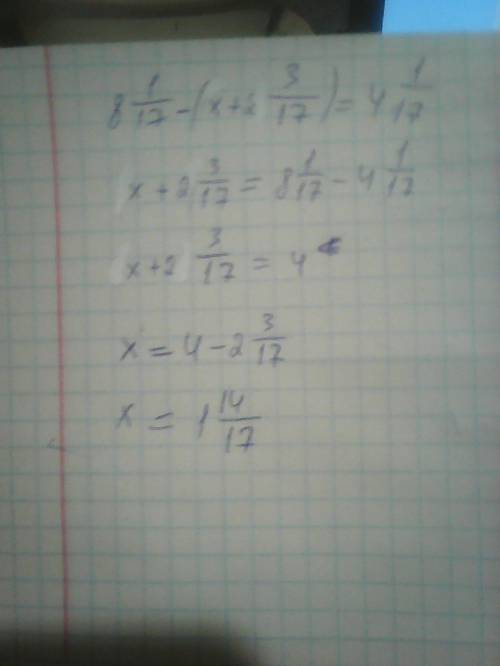 8 1/17 - (x+2 3/17) = 4 1/17
x + 2 3/17 = 8 1/17 - 4 1/17
x + 2 3/17 = 4
x = 4 - 2 3/17
x = 1 14/17